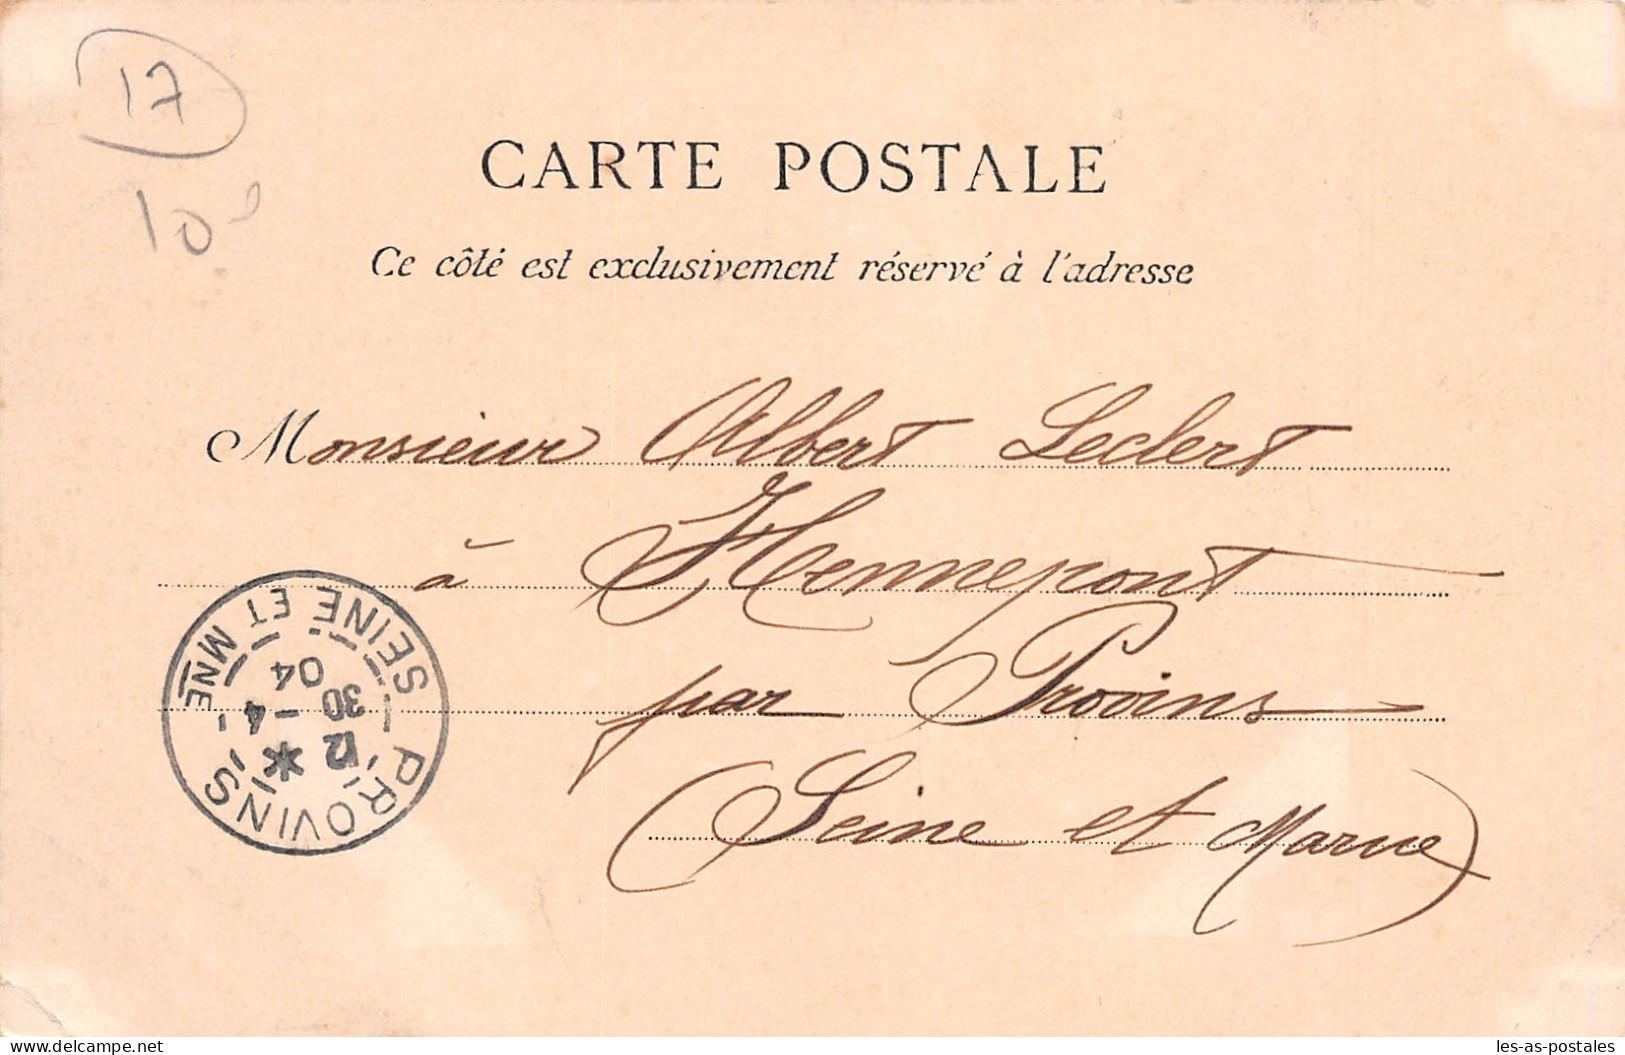 17
10
CARTE POSTALE
Ce côté est exclusivement réservé à l'adresse
Monsieur Albert Leclert
à Hennepont
par Provins
(Seine et Marne)
PROVINS SEINE ET MNE
12 *
30 - 4
04
www.delcampe.net
les-as-postales